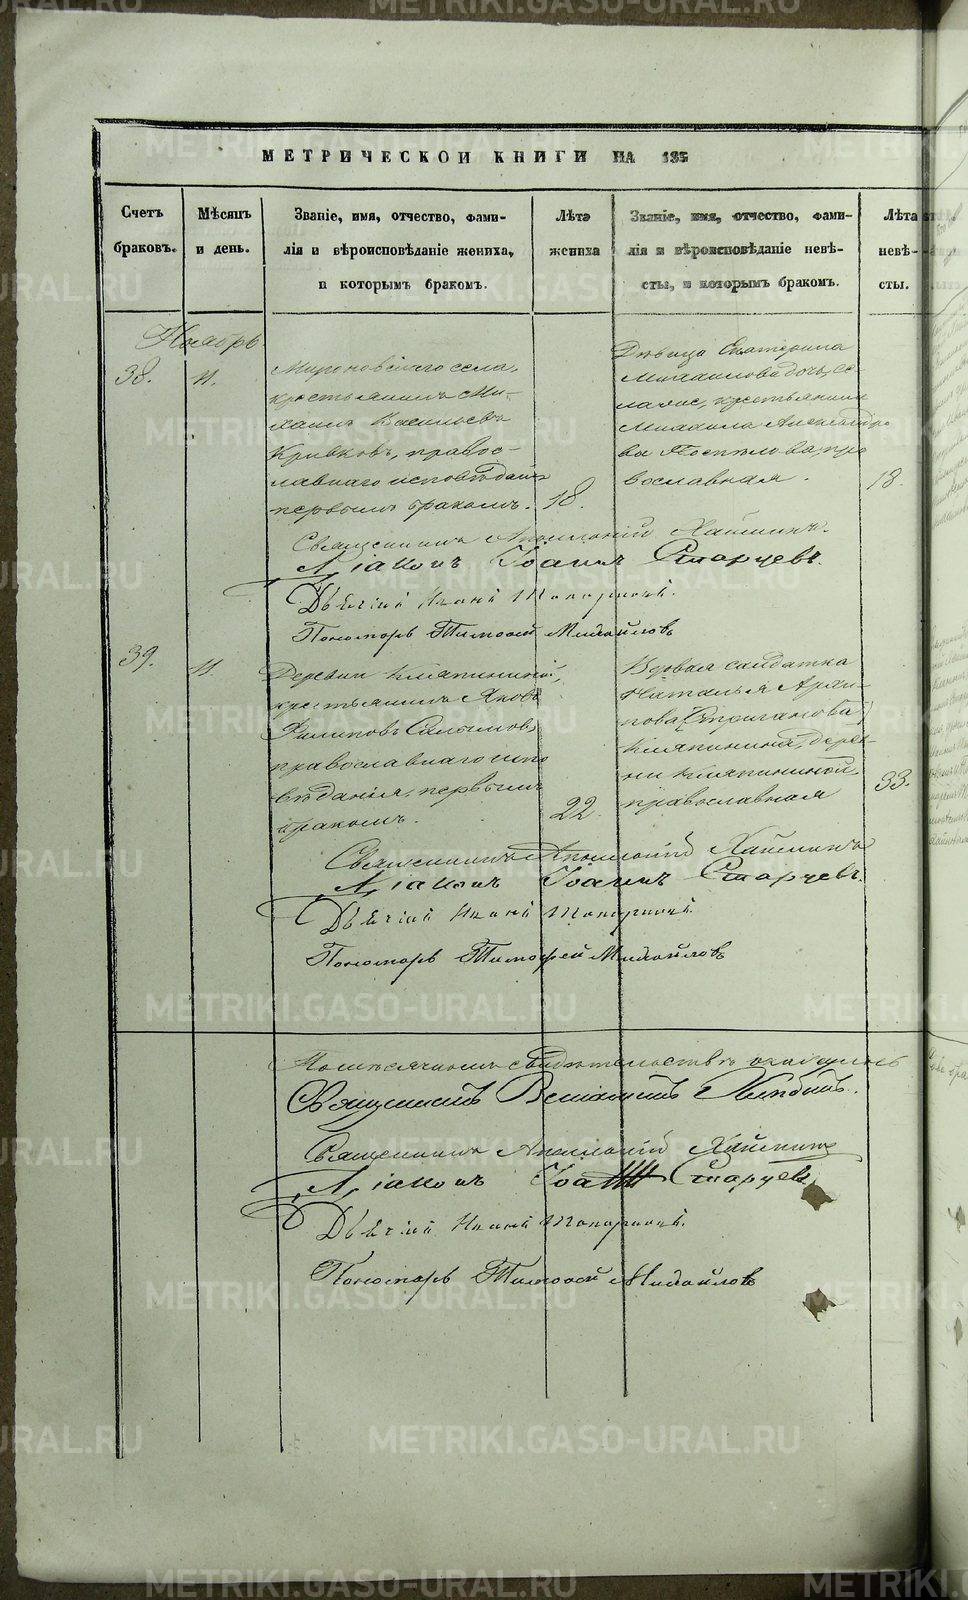 МЕТРИЧЕСКОЙ КНИГИ НА 185
Счетъ браковъ.
Мѣсяцъ и день.
Званіе, имя, отчество, фами-
лія и вѣроисповѣданіе жениха,
и которымъ бракомъ.
Лѣта
жениха
Званіе, имя, отчество, фами-
лія и вѣроисповѣданіе невѣ-
сты, и которымъ бракомъ.
Лѣта
невѣ-
сты.
Ноябрь
38.
11.
Мироновскаго села,
крестьянинъ Ми-
хаилъ Васильевъ
Кривковъ, правос-
лавнаго исповѣданія
первымъ бракомъ.
18.
Дѣвица Екатерина
Михаилова дочь,
крестьянина
Михаила Александро
ва Поспѣлова, пра
вославная.
18.
Священникъ Аполлоній Хайминъ.
Діаконъ Іоаннъ Старцевъ.
Дьячій Иванъ Топорковъ.
Пономарь Тимофей Михайловъ
39.
11.
Деревни Кляпининой,
крестьянинъ Яковъ
Филиповъ
православнаго испо
вѣданія, первымъ
бракомъ.
22.
Вдовая солдатка
Наталья Архи-
пова (Стриганова)
Кляпинина, дерев-
ни Кляпининой,
православная
33.
Священникъ Аполлоній Хайминъ
Діаконъ Іоаннъ Старцевъ.
Дьячій Иванъ Топорковъ.
Пономарь Тимофей Михайловъ
Помѣсячномъ свидѣтельствѣ
Священникъ Веніаминъ
Священникъ Аполлоній Хайминъ
Діаконъ Іоаннъ Старцевъ
Дьячій Иванъ Топорковъ.
Пономарь Тимофей Михайловъ
METRIKI.GASO-URAL.RU